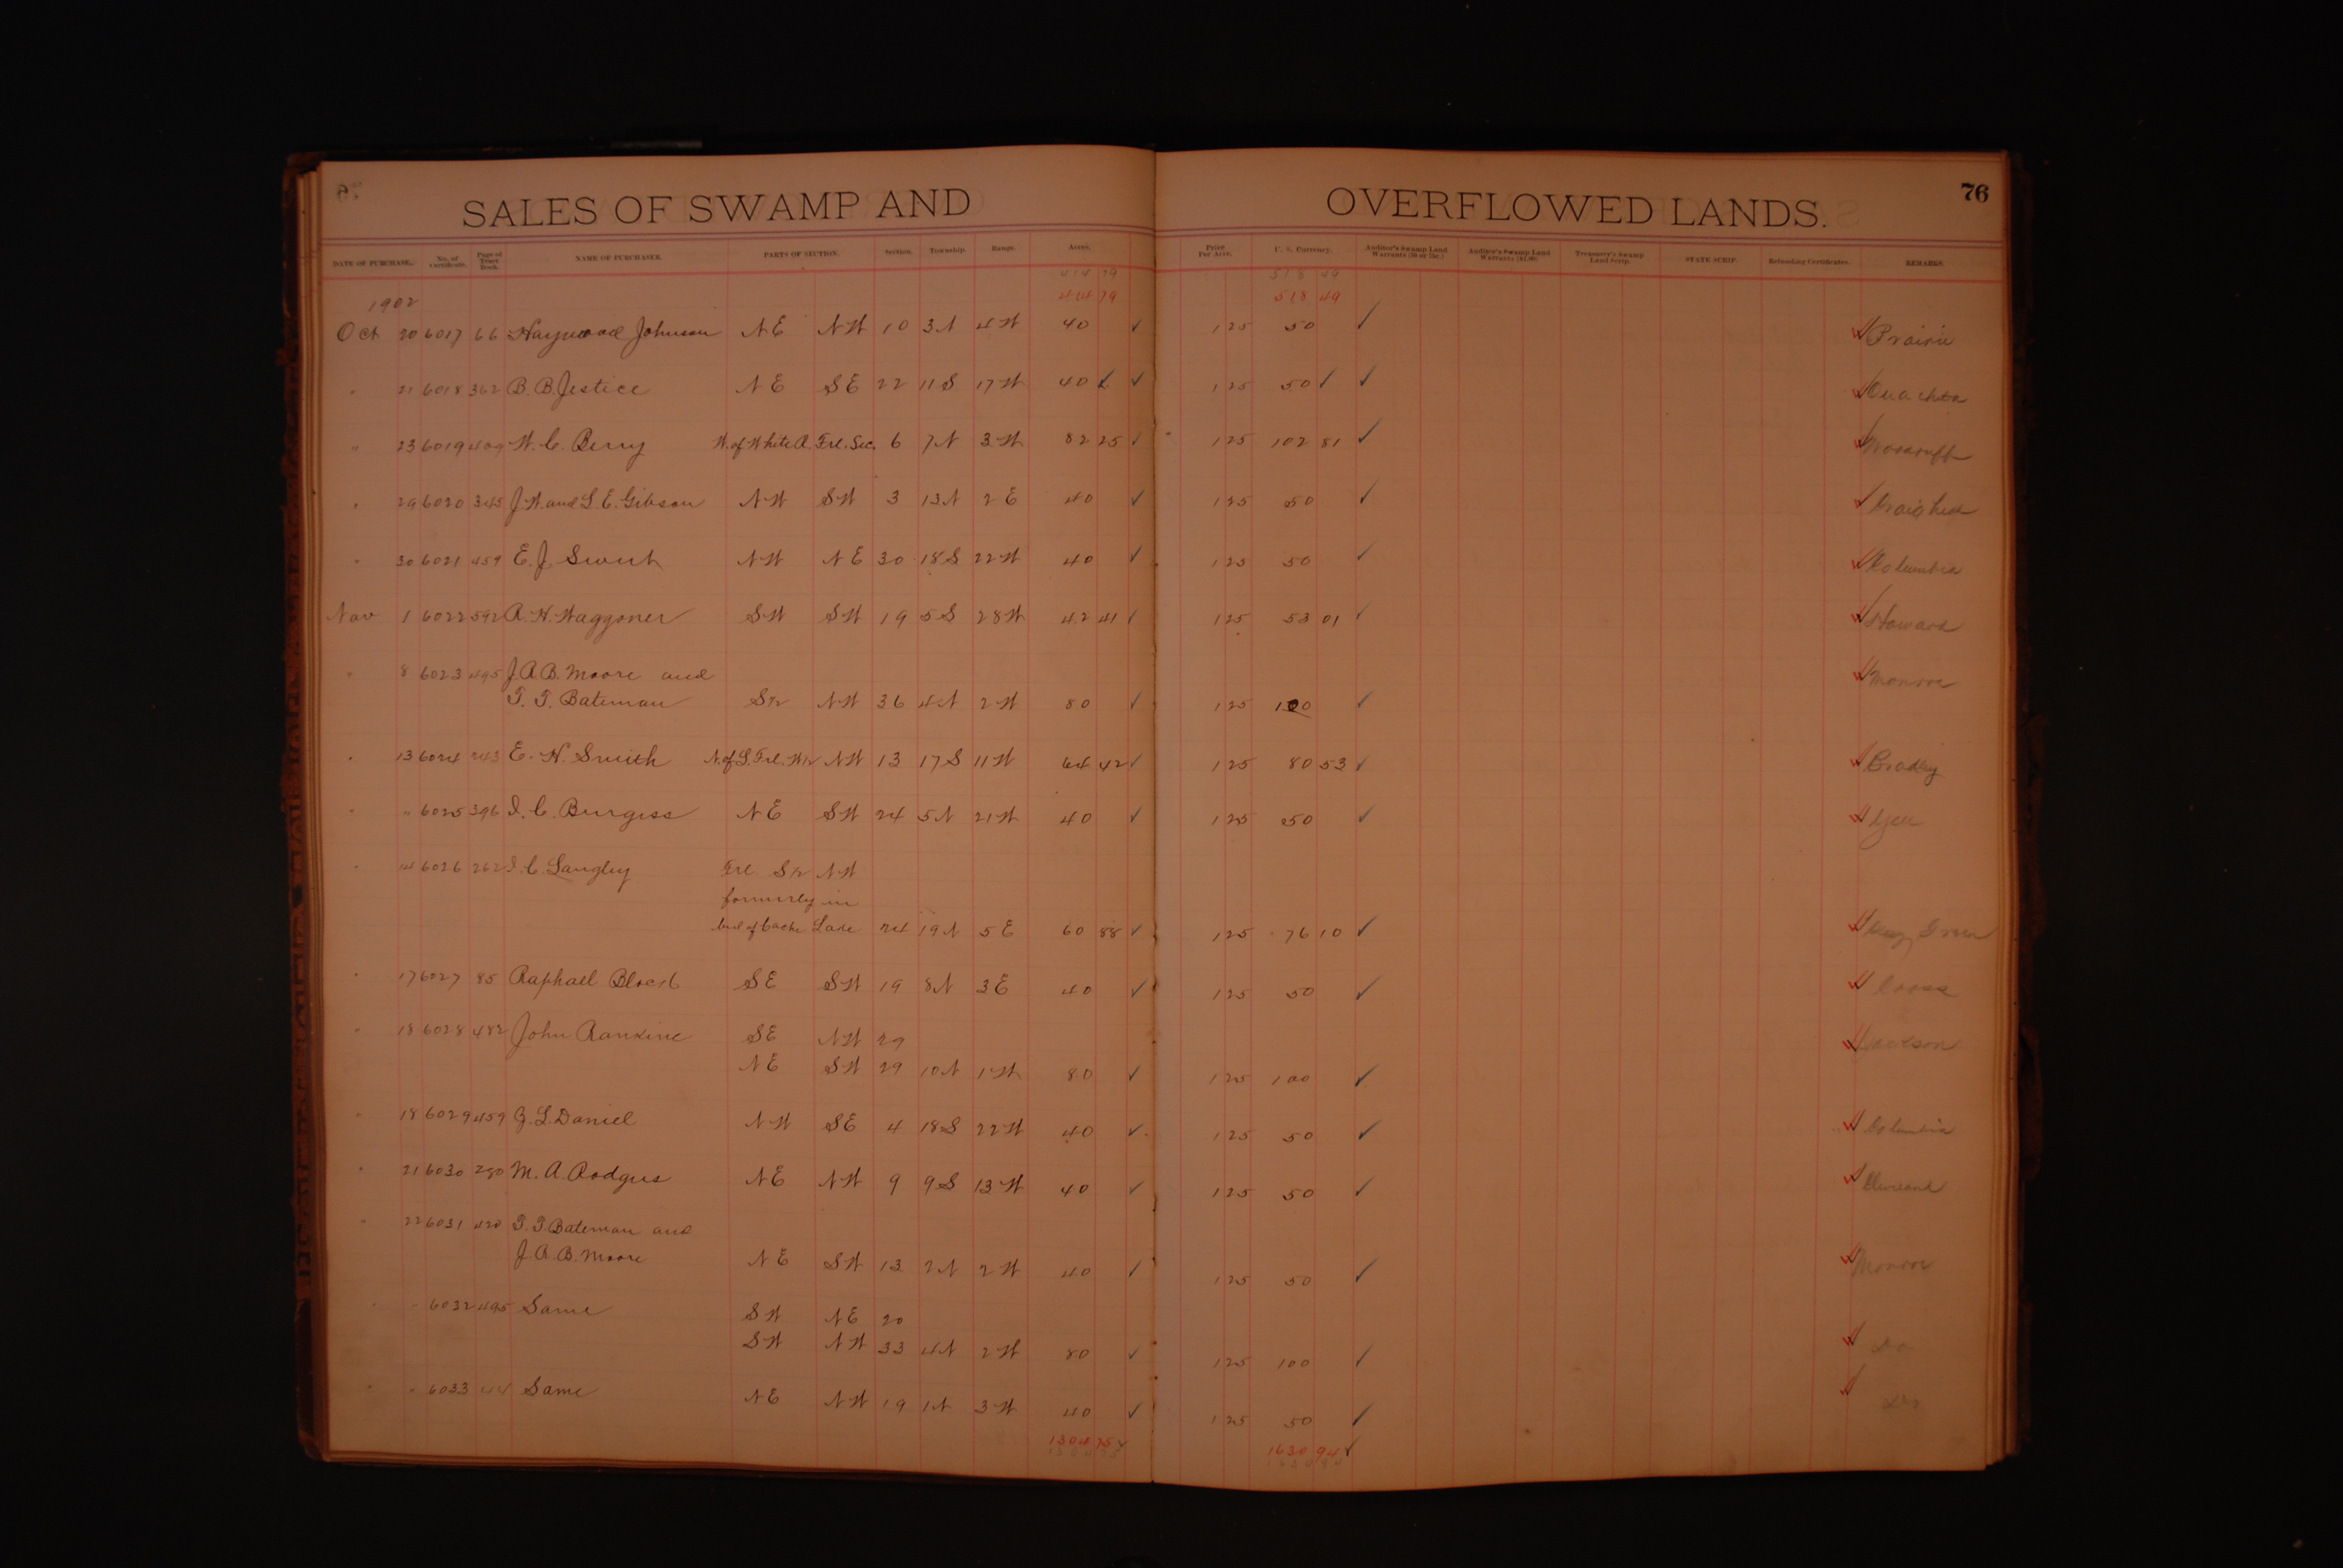 76
SALES OF SWAMP AND OVERFLOWED LANDS.
DATE OF PURCHASE. No. of Certificate. Page of Tract Book. NAME OF PURCHASER. PARTS OF SECTION. Section. Township. Range. Acres. Price Per Acre. U. S. Currency. Auditor's Swamp Land Warrants (50 or 75c.) Auditor's Swamp Land Warrants ($1.00) Treasurer's Swamp Land Scrip. STATE SCRIP. Refunding Certificates. REMARKS.
414 79 518 49
1902 414 79 518 49
Oct 20 6017 66 Haywood Johnson NE NW 10 3N 4W 40 ✓ 125 50 ✓ Prairie
" 21 6018 362 B. B. Jestice NE SE 22 11S 17W 40 ✓ ✓ 125 50 ✓ ✓ Ouachita
" 23 6019 409 W. C. Berry W. of White R. Frl. Sec. 6 7N 3W 82 25 ✓ 125 102 81 ✓ Woodruff
" 29 6020 345 J. W. and L. E. Gibson NW SW 3 13N 2E 40 ✓ 125 50 ✓ Craighead
" 30 6021 459 E. J. NW NE 30 18S 22W 40 ✓ 125 50 ✓ Columbia
Nov 1 6022 592 A. H. Waggoner SW SW 19 5S 28W 42 41 ✓ 125 53 01 ✓ Howard
" 8 6023 495 J. A. B. Moore and Monroe
T. T. Bateman S½ NW 36 4N 2W 80 ✓ 125 100 ✓
" 13 6024 243 E. H. Smith N. of L. Frl. W½ NW 13 17S 11W 64 42 ✓ 125 80 53 ✓ Bradley
" " 6025 396 I. C. Burgess NE SW 24 5N 21W 40 ✓ 125 50 ✓ Yell
" 14 6026 262 I. C. Langley Frl. S½ NW
formerly in
bed of Cache Lake 24 19N 5E 60 88 ✓ 125 76 10 ✓ Green
" 17 6027 85 Raphael SE SW 19 8N 3E 40 ✓ 125 50 ✓ Cross
" 18 6028 482 John Rankine SE NW 29 Jackson
NE SW 29 10N 1W 80 ✓ 125 100 ✓
" 18 6029 459 L. Daniel NW SE 4 18S 22W 40 ✓ 125 50 ✓ Columbia
" 21 6030 280 M. A. Rodgers NE NW 9 9S 13W 40 ✓ 125 50 ✓ Cleveland
" 22 6031 420 T. T. Bateman and
J. A. B. Moore NE SW 13 2N 2W 40 ✓ 125 50 ✓ Monroe
" " 6032 495 Same SW NE 20
SW NW 33 4N 2W 80 ✓ 125 100 ✓ Do
" " 6033 44 Same NE NW 19 1N 3W 40 ✓ 125 50 ✓ Do
1304 75 ✓ 1630 94 ✓
1304 75 1630 94